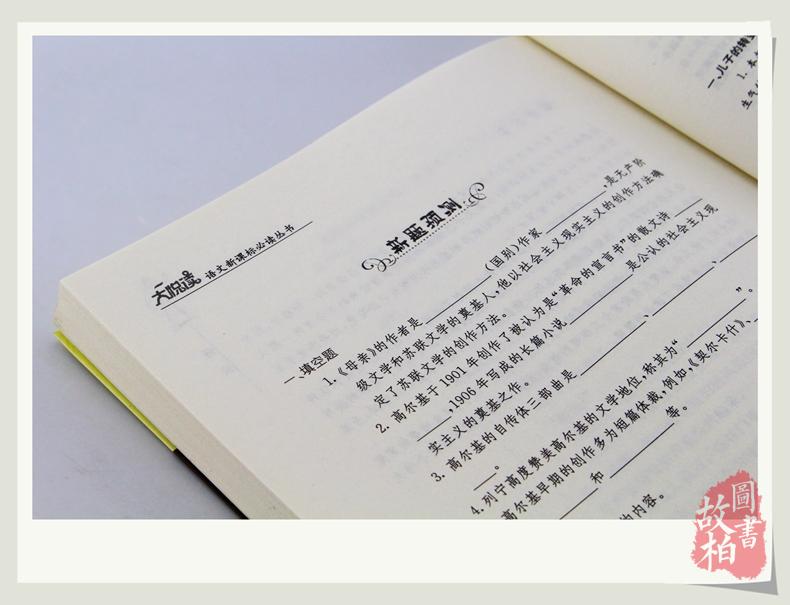 大阅读 语文新课标必读丛书
一、填空题
1.《母亲》的作者是________(国别)作家________,是无产阶
级文学和苏联文学的奠基人,他以社会主义现实主义的创作方法确
定了苏联文学的创作方法。
2. 高尔基于 1901 年创作了被认为是“革命的宣言书”的散文诗____
____,1906 年写成的长篇小说________是公认的社会主义现
实主义的奠基之作。
3. 高尔基的自传体三部曲是________、________、____
____。
4. 列宁高度赞美高尔基的文学地位,称其为“________”。
高尔基早期的创作多为短篇体裁,例如,《契尔卡什》、
________和________等。
的内容。
一、儿子的转
1. 本
生气
故柏
圖書